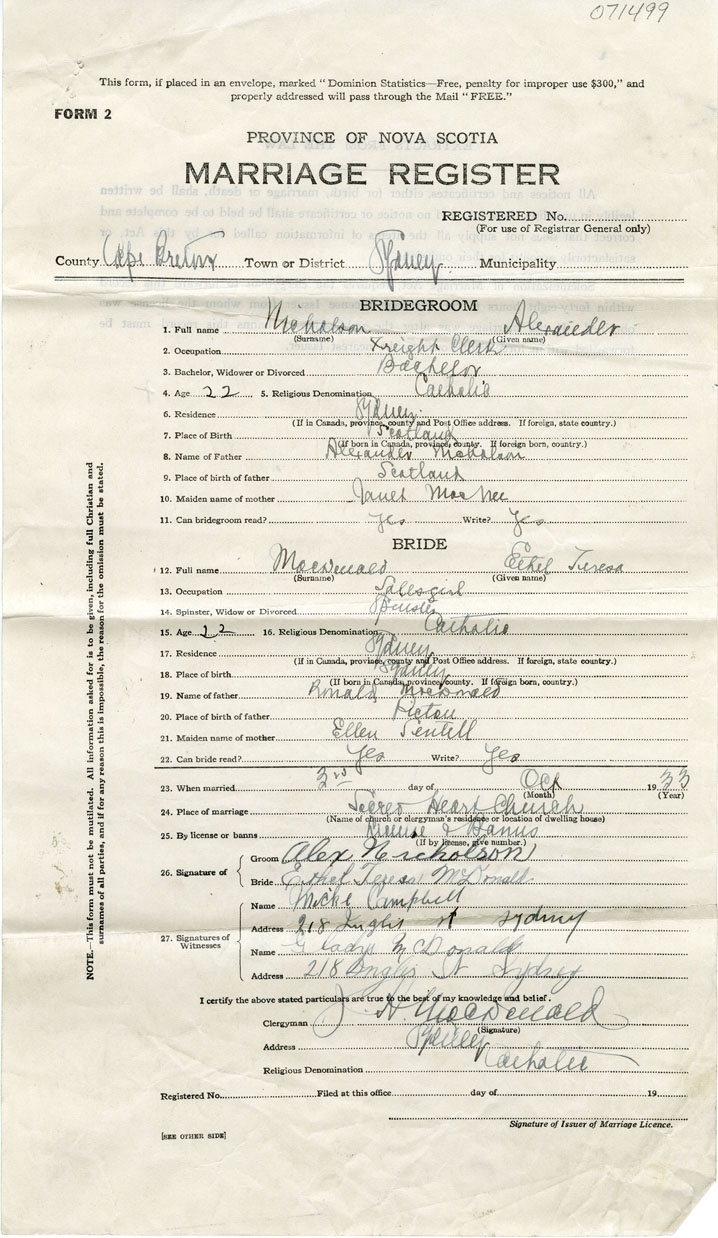 071499
This form, if placed in an envelope, marked "Dominion Statistics—Free, penalty for improper use $300," and
properly addressed will pass through the Mail "FREE."
FORM 2
PROVINCE OF NOVA SCOTIA
MARRIAGE REGISTER
REGISTERED No.
(For use of Registrar General only)
County Cape Breton Town or District Sydney Municipality
BRIDEGROOM
1. Full name Nicholson Alexander
(Surname) (Given name)
2. Occupation Freight Clerk
3. Bachelor, Widower or Divorced Bachelor
4. Age 22 5. Religious Denomination Catholic
6. Residence Sydney
(If in Canada, province, county and Post Office address. If foreign, state country.)
7. Place of Birth Scotland
(If born in Canada, province, county. If foreign born, country.)
8. Name of Father Alexander Nicholson
9. Place of birth of father Scotland
10. Maiden name of mother Janet MacNee
11. Can bridegroom read? Yes Write? Yes
BRIDE
12. Full name MacDonald Ethel Teresa
(Surname) (Given name)
13. Occupation Salesgirl
14. Spinster, Widow or Divorced Spinster
15. Age 22 16. Religious Denomination Catholic
17. Residence Sydney
(If in Canada, province, county and Post Office address. If foreign, state country.)
18. Place of birth Sydney
(If born in Canada, province, county. If foreign born, country.)
19. Name of father Ronald MacDonald
20. Place of birth of father Pictou
21. Maiden name of mother Ellen Sentell
22. Can bride read? Yes Write? Yes
23. When married 3rd day of Oct 1933
(Month) (Year)
24. Place of marriage Sacred Heart Church
(Name of church or clergyman's residence or location of dwelling house)
25. By license or banns License & Banns
(If by license, give number.)
26. Signature of
Groom Alex Nicholson
Bride Ethel Teresa McDonald
27. Signatures of
Witnesses
Name Micke Campbell
Address 218 Inglis st Sydney
Name Gladys McDonald
Address 218 Inglis St Sydney
I certify the above stated particulars are true to the best of my knowledge and belief.
Clergyman J. H. MacDonald
(Signature)
Address Sydney
Religious Denomination Catholic
Registered No. Filed at this office day of 19
Signature of Issuer of Marriage Licence.
[SEE OTHER SIDE]
NOTE.—This form must not be mutilated. All information asked for is to be given, including full Christian and
surnames of all parties, and if for any reason this is impossible, the reason for the omission must be stated.